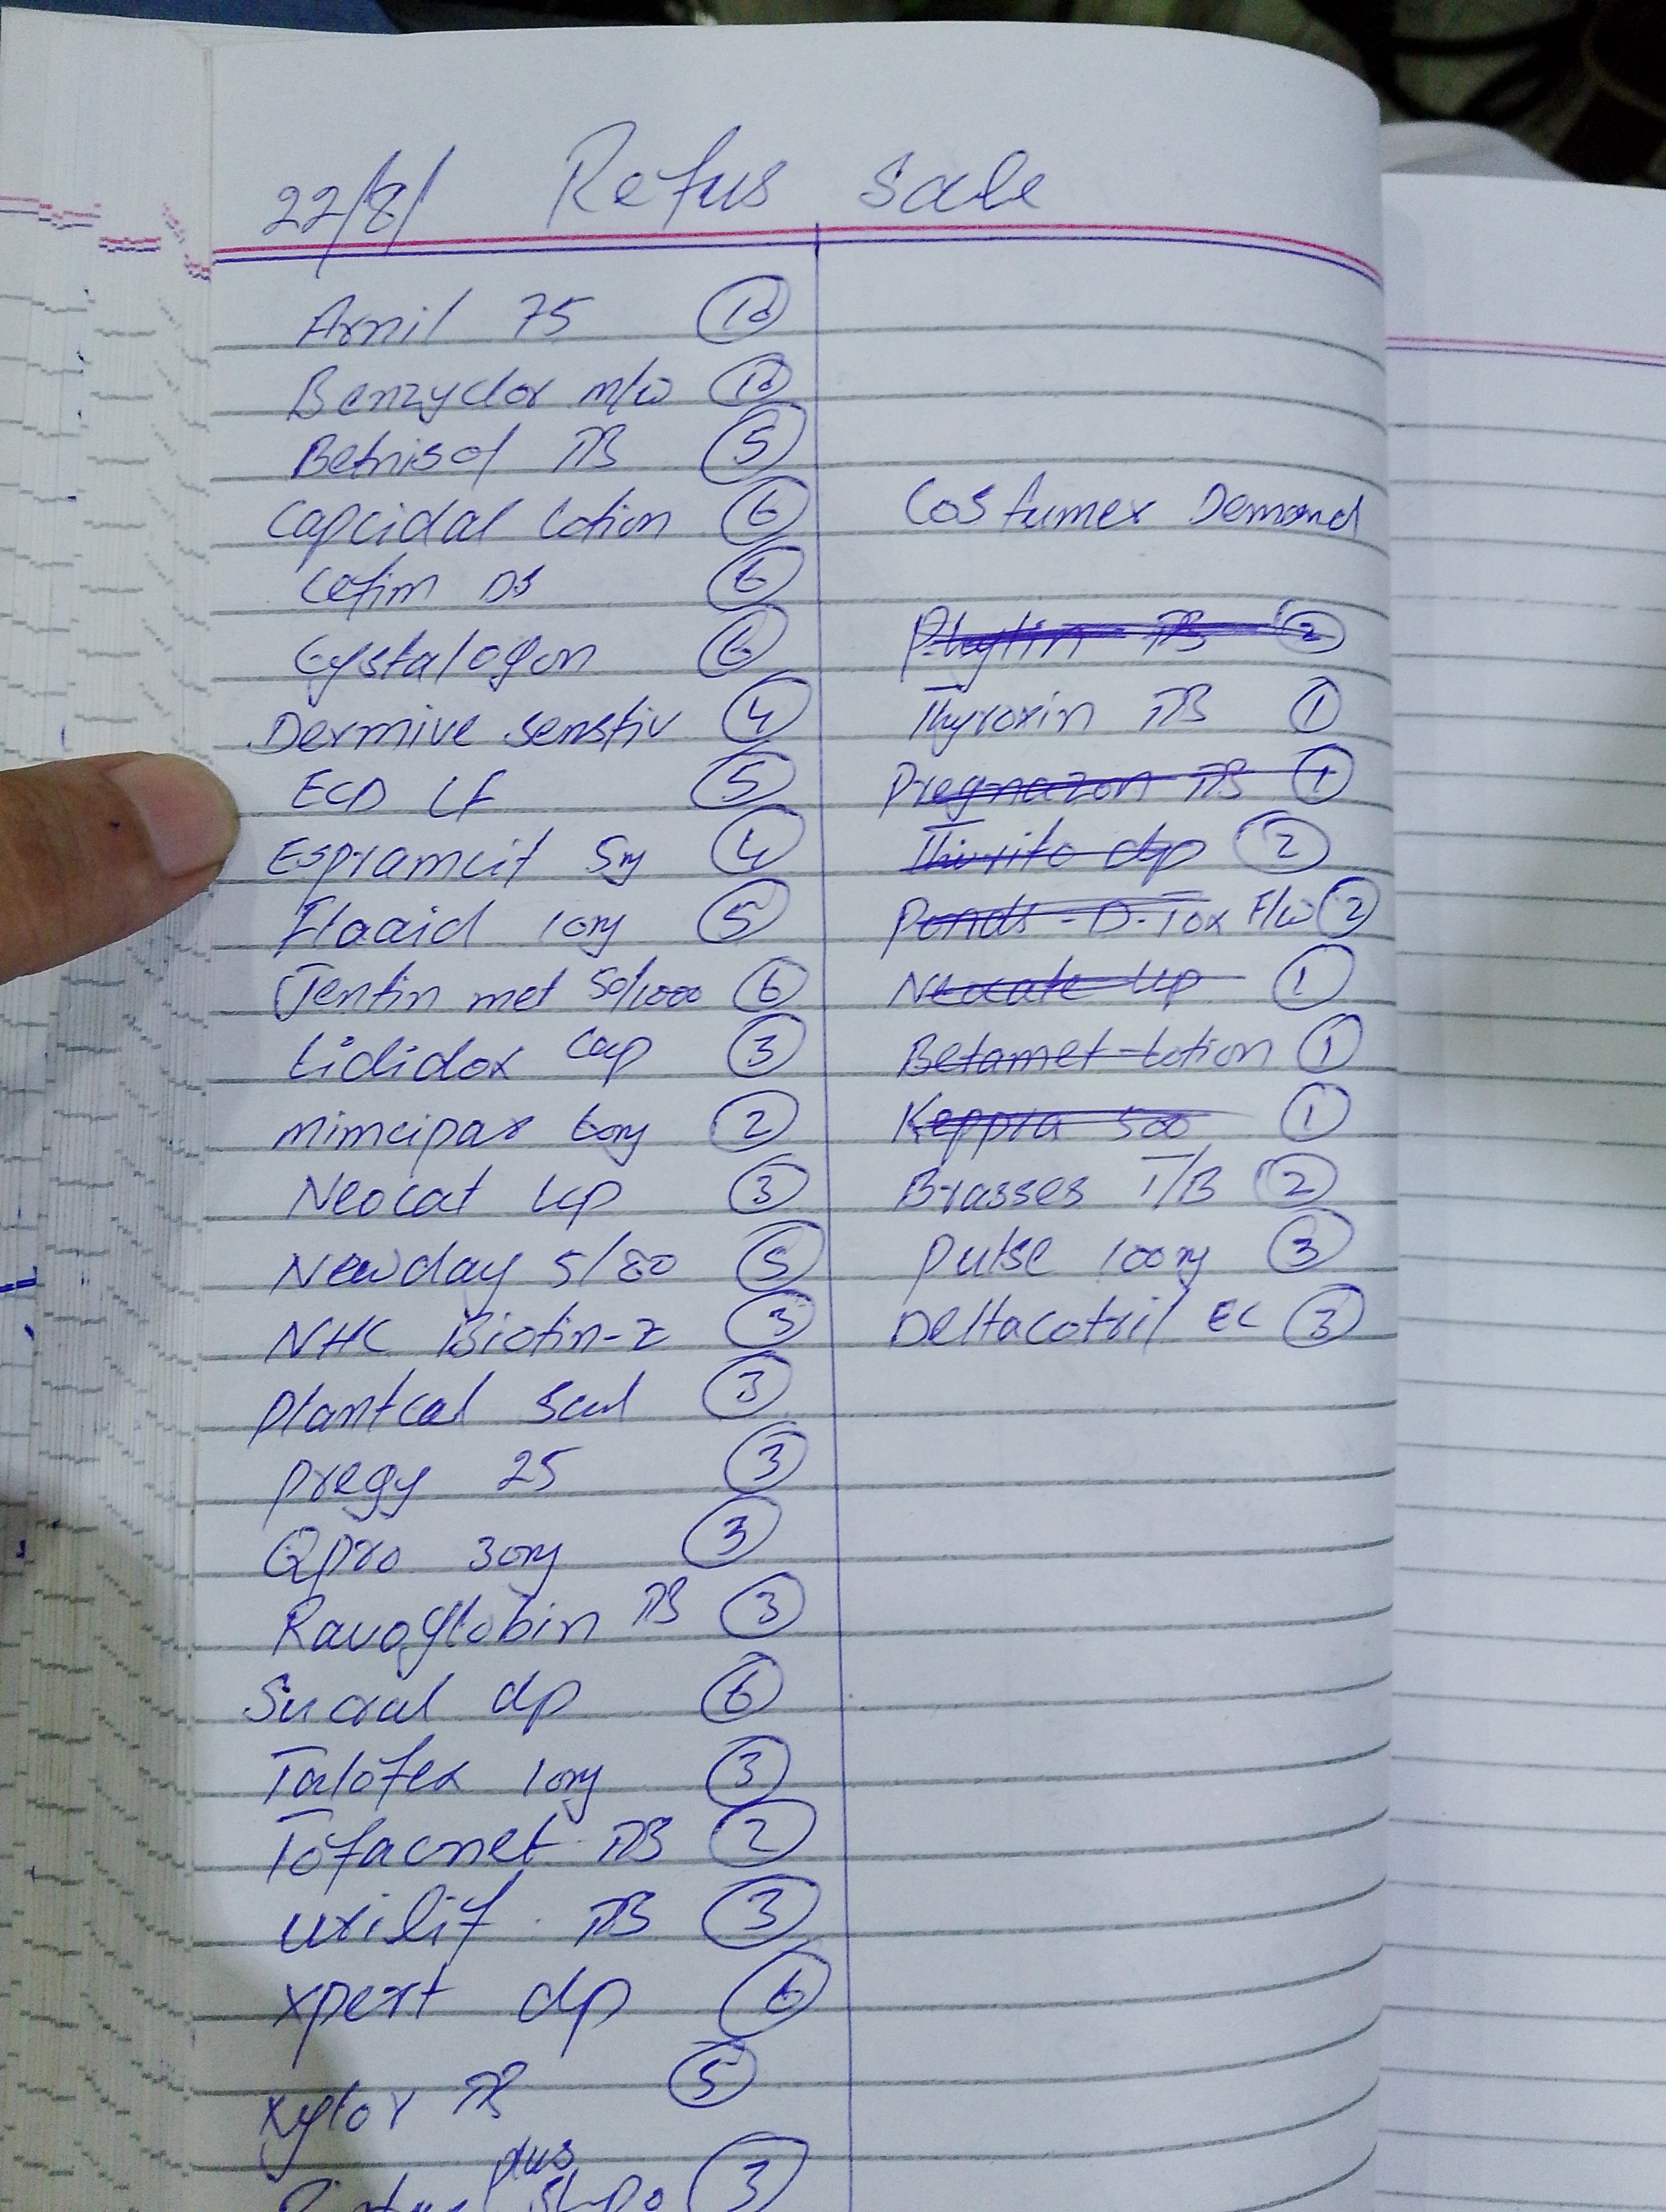 22/8/ Refus Sale
Arnil 75 10
Benzyclor m/w 10
Betnisol TB 5
Capcidal Lotion 6
Cefim DS 6
Cystalogon 6
Dermive senstiv 4
ECD LF 5
Espramcit 5mg 4
Flaaid 10mg 5
Jentin met 50/1000 6
Lididox Cap 3
mimcipar 60mg 2
Neocat LCP 3
Newday 5/80 5
NHC Biotin-Z 3
Plantcal 3
Pregy 25 3
Qpro 30mg 3
Ravoglobin TB 3
Sucral dp 6
Talofex 10mg 3
Tofacnet TB 2
urilif TB 3
xpert dp 6
xylor TB 5
plus
3
Costumer Demand
TB 2
Thyroxin TB 1
Pregnazon TB 1
dp 2
Ponds-D-Tox F/w 2
Neocate LCP 1
Betamet-Lotion 1
Keppra 500 1
Brasses T/B 2
Pulse 100mg 3
Deltacotril EC 3